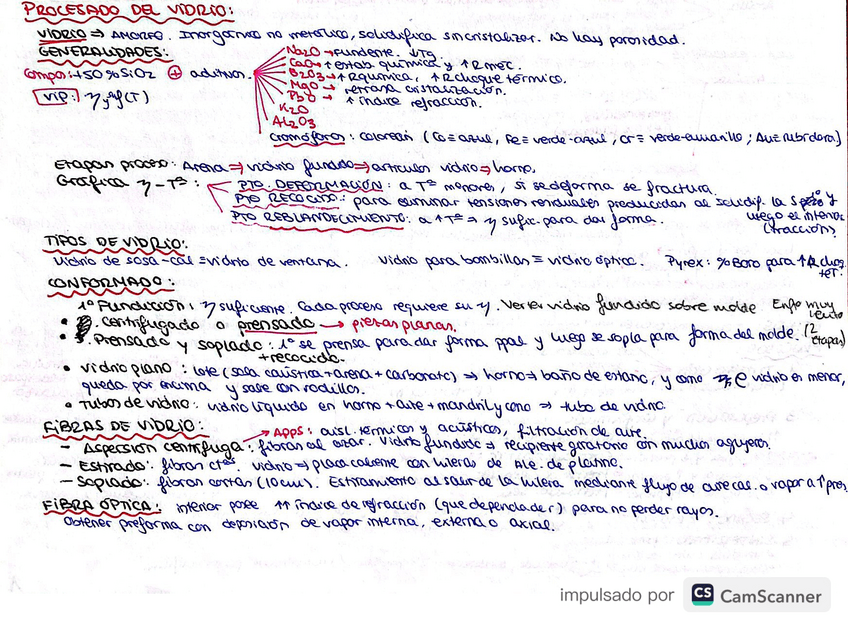 PROCESADO DEL VIDRIO:
VIDRIO ⇒ AMORFO. Inorgánico no metálico, solidifica sin cristalizar. No hay porosidad.
GENERALIDADES:
Compos: +50%SiO2 ⊕ aditivos.
Na2O → Fundente. ↓Tg
CaO → ↑ estab. química y ↑ R mec.
B2O3 → ↑ R química, ↑ R choque térmico.
MgO → retrasa cristalización.
PbO → ↑ índice refracción.
K2O
Al2O3
VIP: η y ρf(T)
Cromóforos: colorean (Co = azul, Fe = verde-azul, Cr = verde-amarillo; Au = rubí dora.)
Etapas proceso: Arena ⇒ vidrio fundido ⇒ artículos vidrio ⇒ horno.
Gráfica η-Tª:
PTO. DEFORMACIÓN: a Tª menores, si se deforma se fractura.
PTO RECOCIDO: para eliminar tensiones residuales producidas al solidif. la 1º y luego el interior (tracción)
PTO REBLANDECIMIENTO: a ↑Tª ⇒ η sufic. para dar forma.
TIPOS DE VIDRIO:
Vidrio de sosa-cal = vidrio de ventana. Vidrio para bombillas ≡ vidrio óptico. Pyrex: %Boro para ↑R choq. tér.
CONFORMADO:
1º Fundición: η suficiente. Cada proceso requiere su η. Verter vidrio fundido sobre molde Enfo muy lento
• Centrifugado o prensado → piezas planas.
• Prensado y soplado: 1º se prensa para dar forma ppal y luego se sopla para forma del molde. (2 etapas)
+ recocido.
• Vidrio plano: lote (sosa caústica + arena + carbonato) ⇒ horno ⇒ baño de estaño, y como ρ vidrio es menor,
queda por encima y sale con rodillos.
• Tubos de vidrio: vidrio líquido en horno + aire + mandril y cono ⇒ tubo de vidrio.
FIBRAS DE VIDRIO:
→ Apps: aisl. térmicos y acústicos, filtración de aire.
- Aspersión centrífuga: fibras al azar. Vidrio fundido ⇒ recipiente giratorio con muchos agujeros.
- Estirado: fibras ctas. vidrio ⇒ placa caliente con hileras de Ale. de platino.
- Soplado: fibras cortas (10cm). Estiramiento al salir de la hilera mediante flujo de aire cal. o vapor a ↑ pres
FIBRA ÓPTICA: interior posee ↑↑ índice de refracción (que depende de r) para no perder rayos.
Obtener preforma con deposición de vapor interna, externa o axial.
impulsado por CS CamScanner